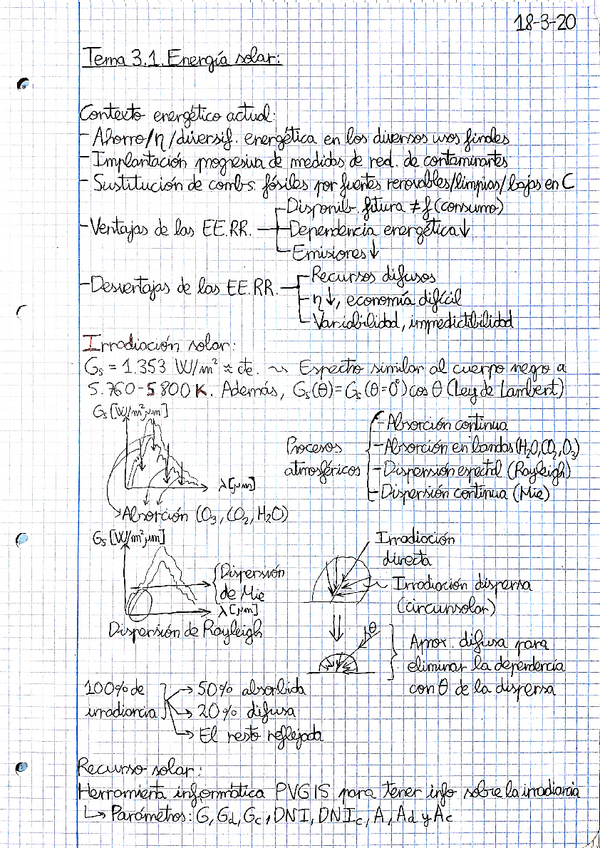 18-3-20
Tema 3.1. Energía solar:
Contexto energético actual:
- Ahorro/η/diversif. energética en los diversos usos finales
- Implantación progresiva de medidas de red. de contaminantes
- Sustitución de combs. fósiles por fuentes renovables/limpias/bajas en C
- Ventajas de las EE.RR.
- Disponib. futura ≠ f(consumo)
- Dependencia energética ↓
- Emisiones ↓
- Desventajas de las EE.RR.
- Recursos difusos
- η↓, economía difícil
- Variabilidad, impredictibilidad
Irradiación solar:
Gs = 1.353 W/m² ≈ cte. ~ Espectro similar al cuerpo negro a
5.760-5800 K. Además, Gs(θ)=Gs(θ=0°)cos θ (Ley de Lambert)
Gs [W/m²μm]
λ[μm]
Absorción (O3, CO2, H2O)
Procesos
atmosféricos
- Absorción continua
- Absorción en bandas (H2O, CO2, O2)
- Dispersión espectal (Rayleigh)
- Dispersión continua (Mie)
Gs [W/m²μm]
Dispersión
de Mie
λ[μm]
Dispersión de Rayleigh
Irradiación
directa
Irradiación dispersa
(circunsolar)
θ
Aprox. difusa para
eliminar la dependencia
con θ de la dispersa
100% de
irradiancia
→ 50% absorbida
→ 20% difusa
→ El resto reflejada
Recurso solar:
Herramienta informática PVGIS para tener info sobre la irradiancia
↳ Parámetros: G, Gd, Gc, DNI, DNIc, A, Ad y Ac